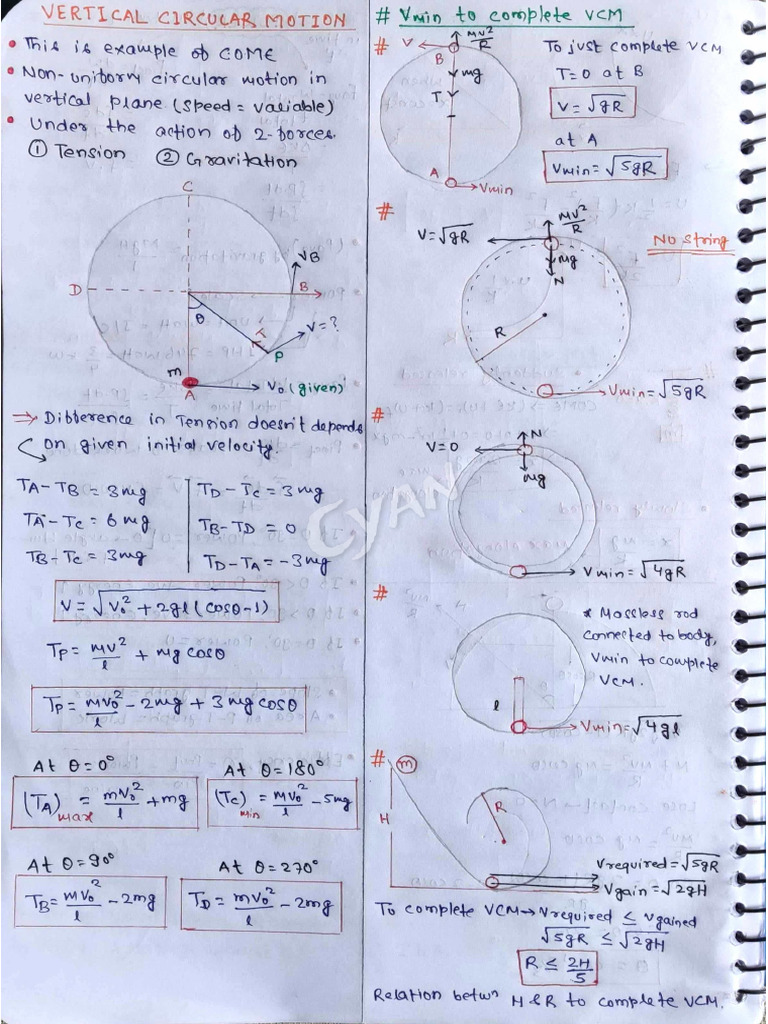 VERTICAL CIRCULAR MOTION
• This is example of COME
• Non-uniform circular motion in
vertical plane (speed = variable)
• Under the action of 2-forces.
① Tension ② Gravitation
C
VB
D
B
θ
T
V=?
P
m
A
V₀ (given)
⇒ Difference in Tension doesn't depends
on given initial velocity.
TA - TB = 3mg
TD - TC = 3mg
TA - TC = 6mg
TB - TD = 0
TB - TC = 3mg
TD - TA = -3mg
V = √V₀² + 2gl (cosθ-1)
TP = mv²/l + mg cosθ
TP = mv₀²/l - 2mg + 3mg cosθ
At θ = 0°
At θ = 180°
(TA)max = mv₀²/l + mg
(TC)min = mv₀²/l - 5mg
At θ = 90°
At θ = 270°
TB = mv₀²/l - 2mg
TD = mv₀²/l - 2mg
# Vmin to complete VCM
#
V
MV²/R
B
mg
T
A
Vmin
To just complete VCM
T=0 at B
V = √gR
at A
Vmin = √5gR
#
V = √gR
MV²/R
mg
N
No string
R
Vmin = √5gR
#
V=0
N
mg
Vmin = √4gR
#
* Massless rod
connected to body,
Vmin to complete
VCM.
l
Vmin = √4gl
#
m
H
R
Vrequired = √5gR
Vgain = √2gH
To complete VCM → Vrequired ≤ Vgained
√5gR ≤ √2gH
R ≤ 2H/5
Relation betwn H & R to complete VCM.
CYAN